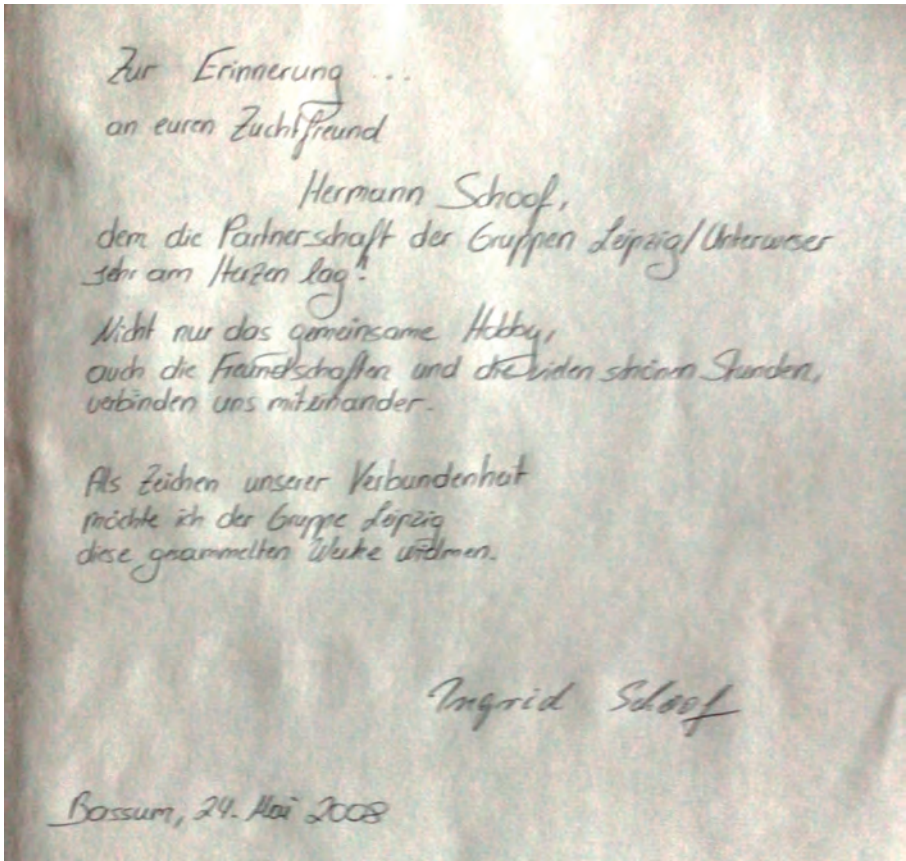 Zur Erinnerung ...
an euren Zuchtfreund
Hermann Schoof,
dem die Partnerschaft der Gruppen Leipzig/Unterweser
sehr am Herzen lag!
Nicht nur das gemeinsame Hobby,
auch die Freundschaften und die vielen schönen Stunden,
verbinden uns miteinander.
Als Zeichen unserer Verbundenheit
möchte ich der Gruppe Leipzig
diese gesammelten Werke widmen.
Ingrid Schoof
Bassum, 24. Mai 2008